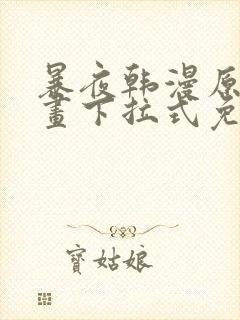 暴夜韩漫原
畫下拉式免
寳姑娘